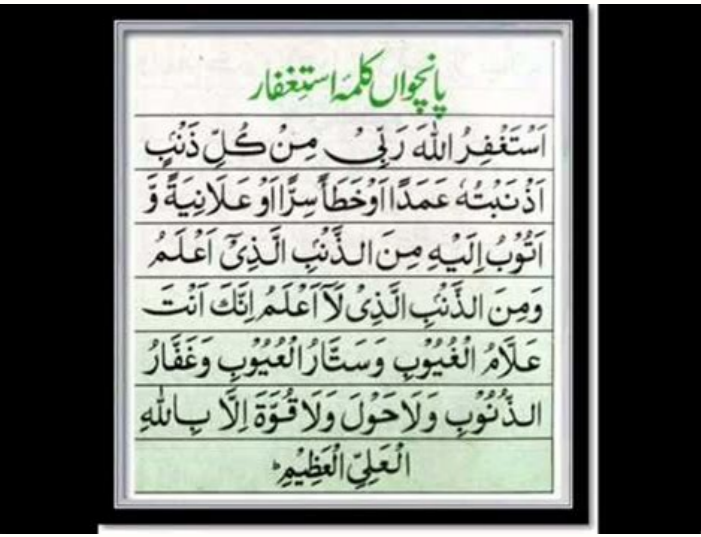 پانچواں کلمۂ استغفار
اَسْتَغْفِرُ اللّٰهَ رَبِّىْ مِنْ كُلِّ ذَنْۢبٍ
اَذْنَبْتُهٗ عَمَدًا اَوْ خَطَأً سِرًّا اَوْ عَلَانِيَةً وَّ
اَتُوْبُ اِلَيْهِ مِنَ الذَّنْۢبِ الَّذِىْٓ اَعْلَمُ
وَمِنَ الذَّنْۢبِ الَّذِىْ لَآ اَعْلَمُ اِنَّكَ اَنْتَ
عَلَّامُ الْغُيُوْبِ وَسَتَّارُ الْعُيُوْبِ وَغَفَّارُ
الذُّنُوْبِ وَلَا حَوْلَ وَلَا قُوَّةَ اِلَّا بِاللّٰهِ
الْعَلِىِّ الْعَظِيْمِ ؕ